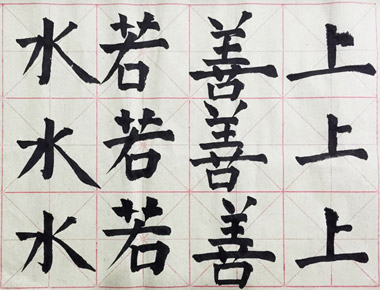 上善若水
上善若水
上善若水